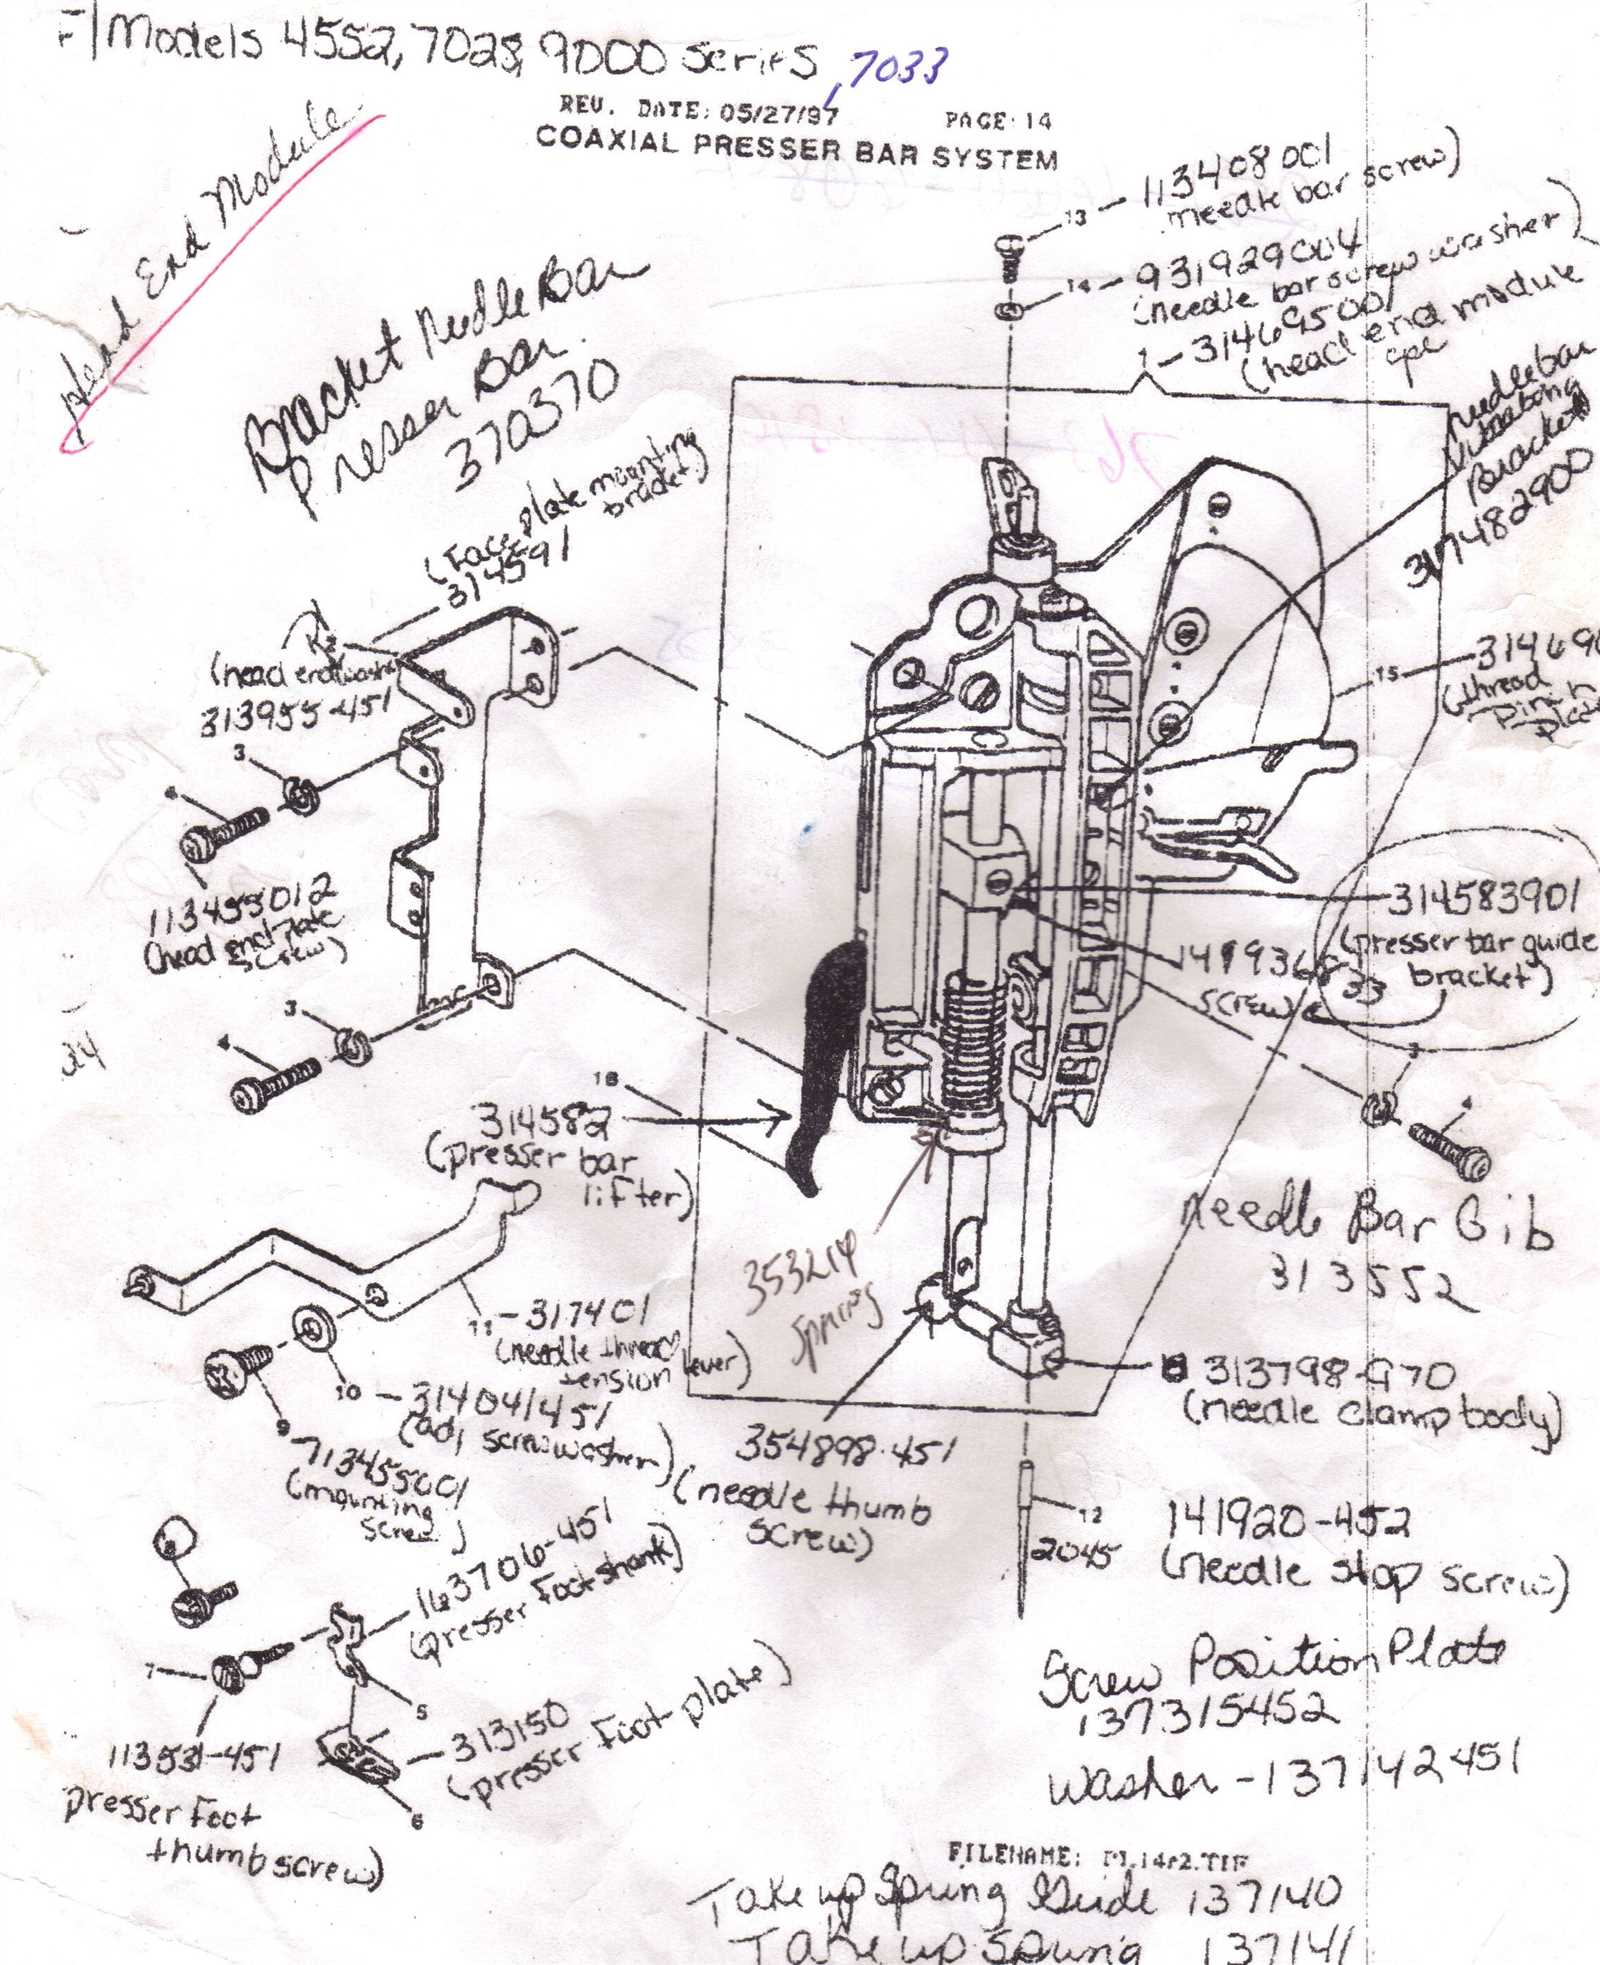 F/Models 4552, 7028, 9000 series, 7033
REV. DATE: 05/27/97
PAGE: 14
COAXIAL PRESSER BAR SYSTEM
Head End Module
Bracket Needle Bar
Presser Bar.
370370
13 - 113408001
needle bar screw)
14 - 931929004
(needle bar screw washer)
1 - 314695001
(head end module
cpl
needle bar
Bracket
317482900
(Face plate mounting
bracket)
314591
(head end washer
313955-451
3
4
113455012
(head end plate
screw)
3
4
24
15
(thread
pinch
plate
314583901
(presser bar guide
bracket)
screw)
33
3
4
18
314582
(presser bar
lifter)
Needle Bar Gib
313552
353214
spring
11 - 317401
(needle thread
tension lever)
10 - 314041451
(adj screw washer)
9
713455001
(mounting
screw)
313798-G70
(needle clamp body)
354898-451
(needle thumb
screw)
12
2045
141920-452
(needle stop screw)
163706-451
(presser foot shank)
7
5
113531-451
presser foot
thumbscrew)
313150
(presser foot plate)
6
Screw Position Plate
137315452
Washer - 137142451
FILENAME:
Take up Spring Guide 137140
Take up Spring 137141